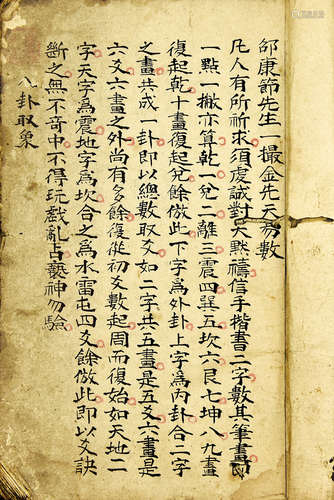 邵康節先生一撮金先天易數
凡人有所祈求須虔誠對天默禱信手楷書二字數其筆畫即
一點一撇亦算乾一兌二離三震四巽五坎六艮七坤八九畫
復起乾十畫復起兌餘倣此下字為外卦上字為內卦合二字
之畫共成一卦即以總數取爻如二字共五畫是五爻六畫是
六爻六畫之外尚有多餘復從初爻數起周而復始如天地二
字天字為震地字為坎合之為水雷屯四爻餘倣此即以爻訣
斷之無不奇中不得玩戲亂占褻神勿驗
八卦取象